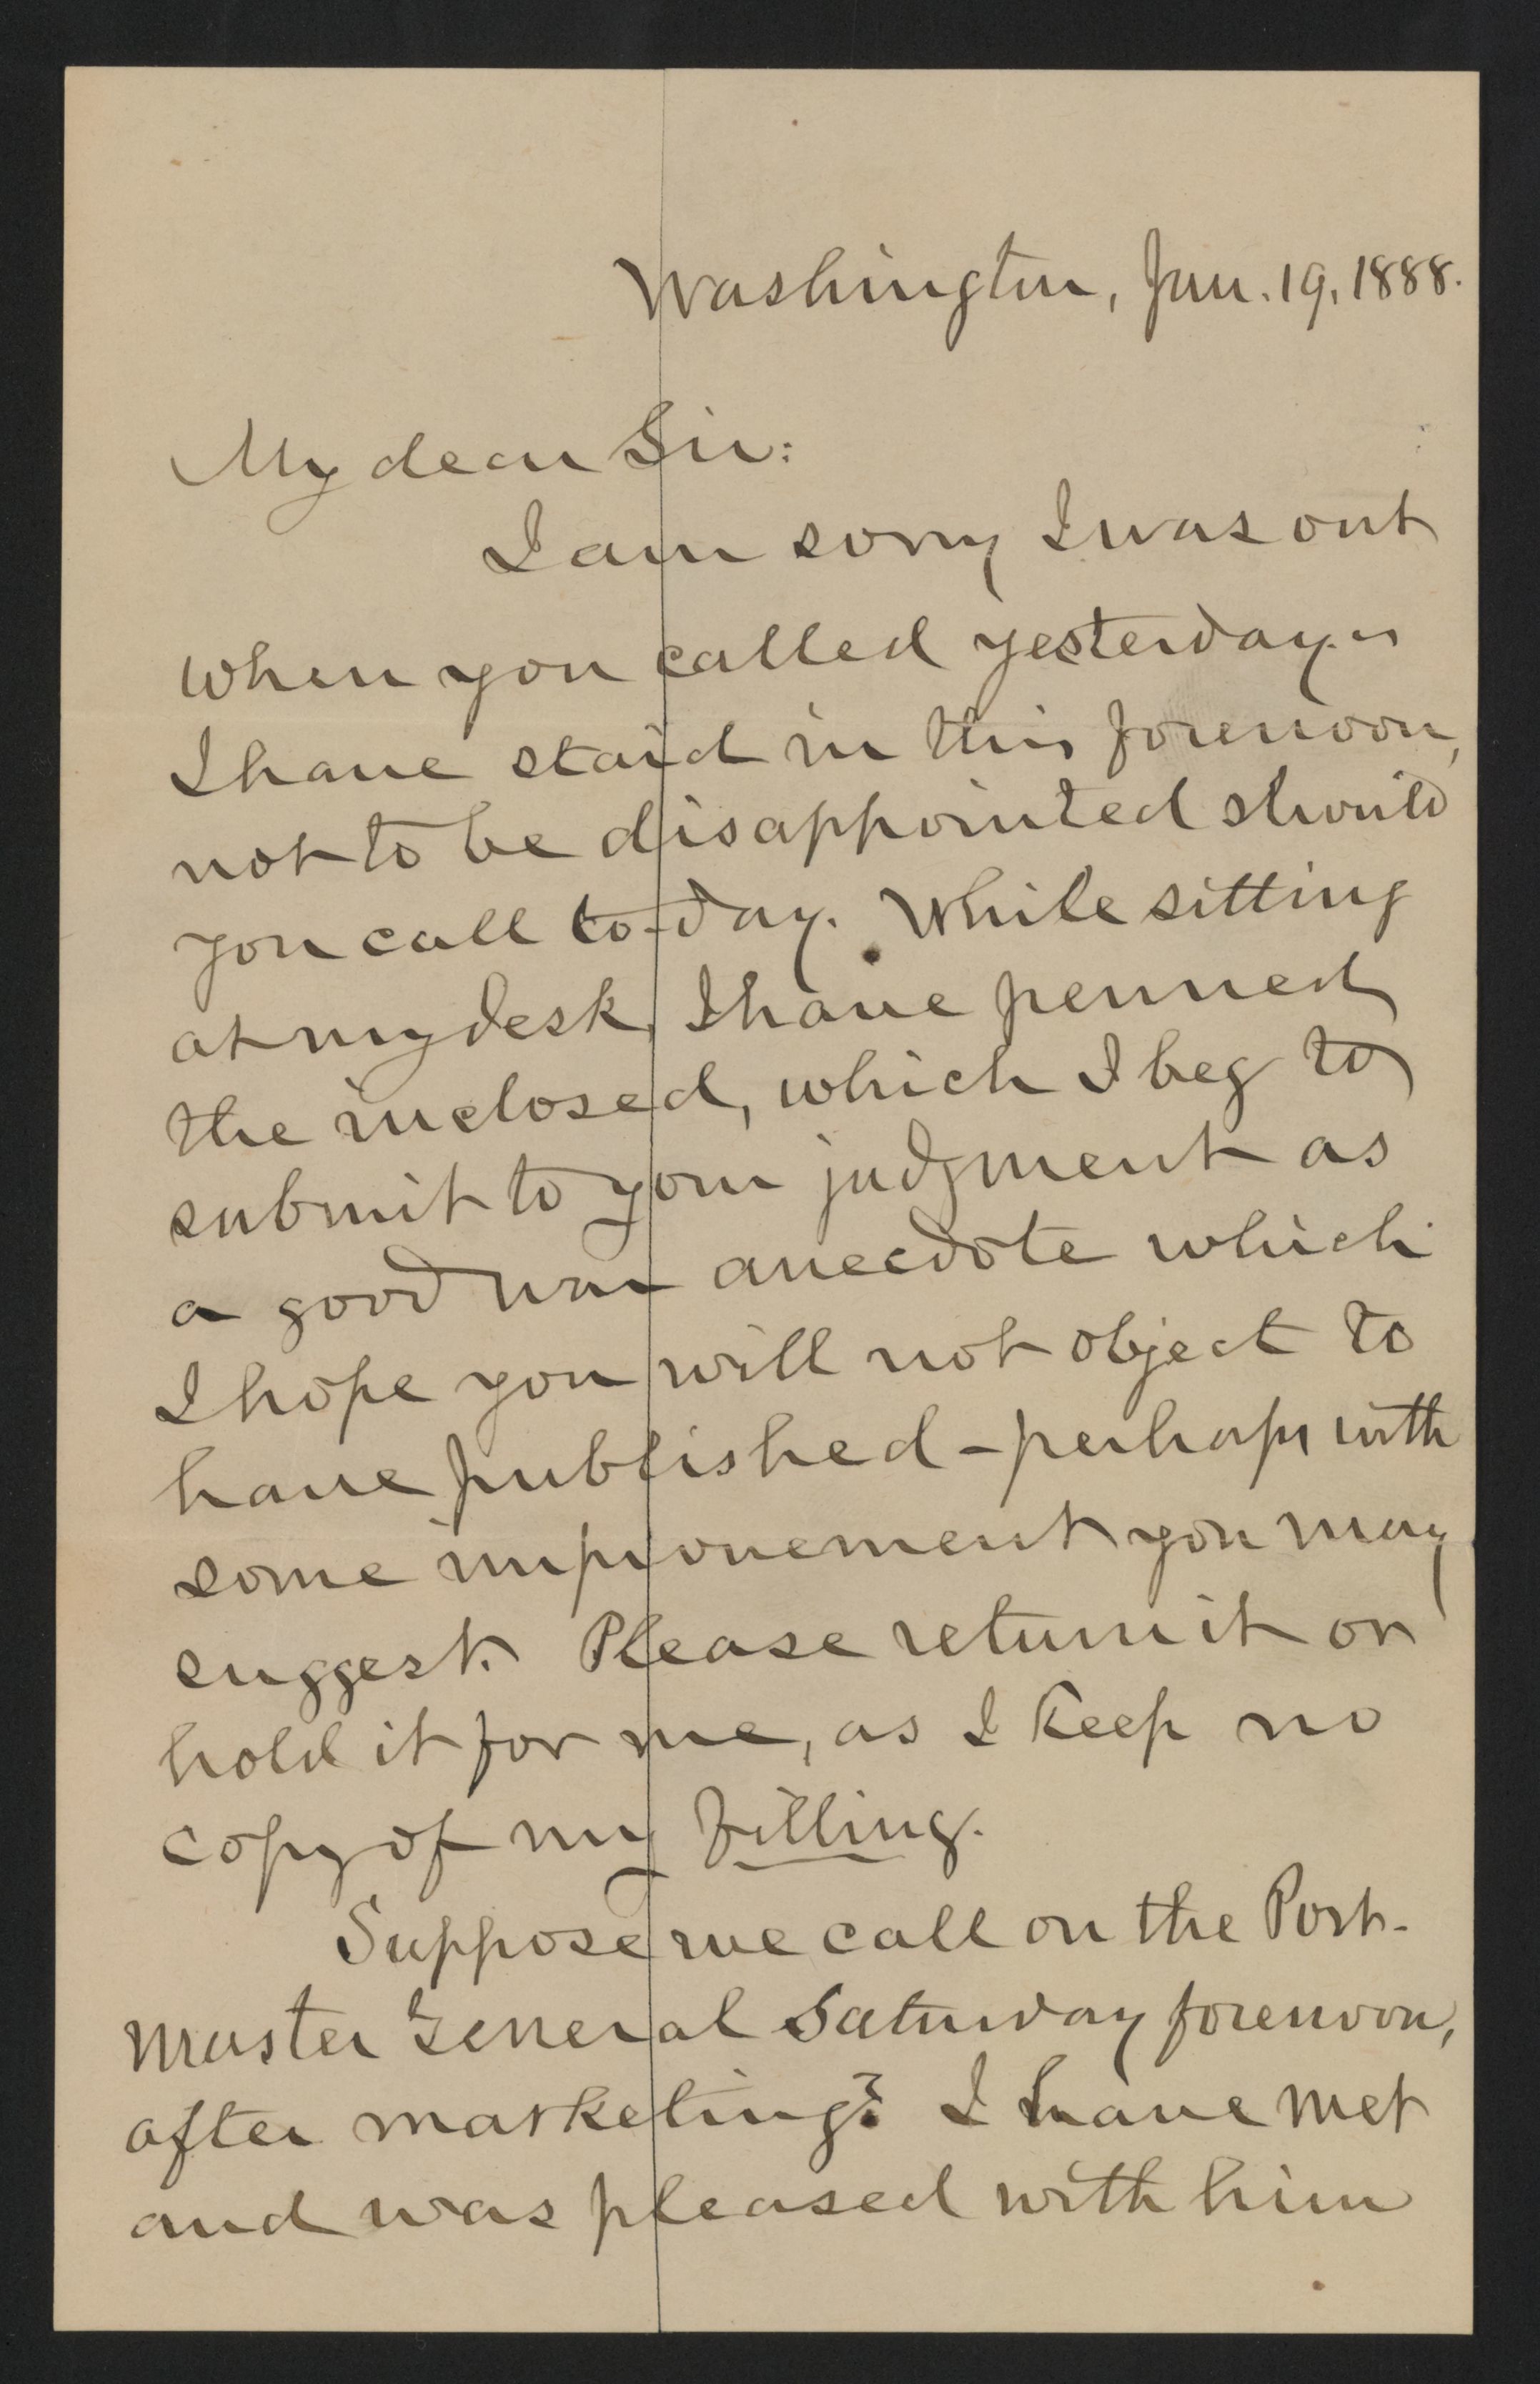 Washington, Jan. 19, 1888.
My dear Sir:
I am sorry I was out
when you called yesterday.
I have staid in this forenoon,
not to be disappointed should
you call to-day. While sitting
at my desk, I have penned
the inclosed, which I beg to
submit to your judgment as
a good war anecdote which
I hope you will not object to
have published - perhaps with
some improvement you may
suggest. Please return it or
hold it for me, as I keep no
copy of my filling.
Suppose we call on the Post-
master General Saturday forenoon,
after marketing? I have met
and was pleased with him